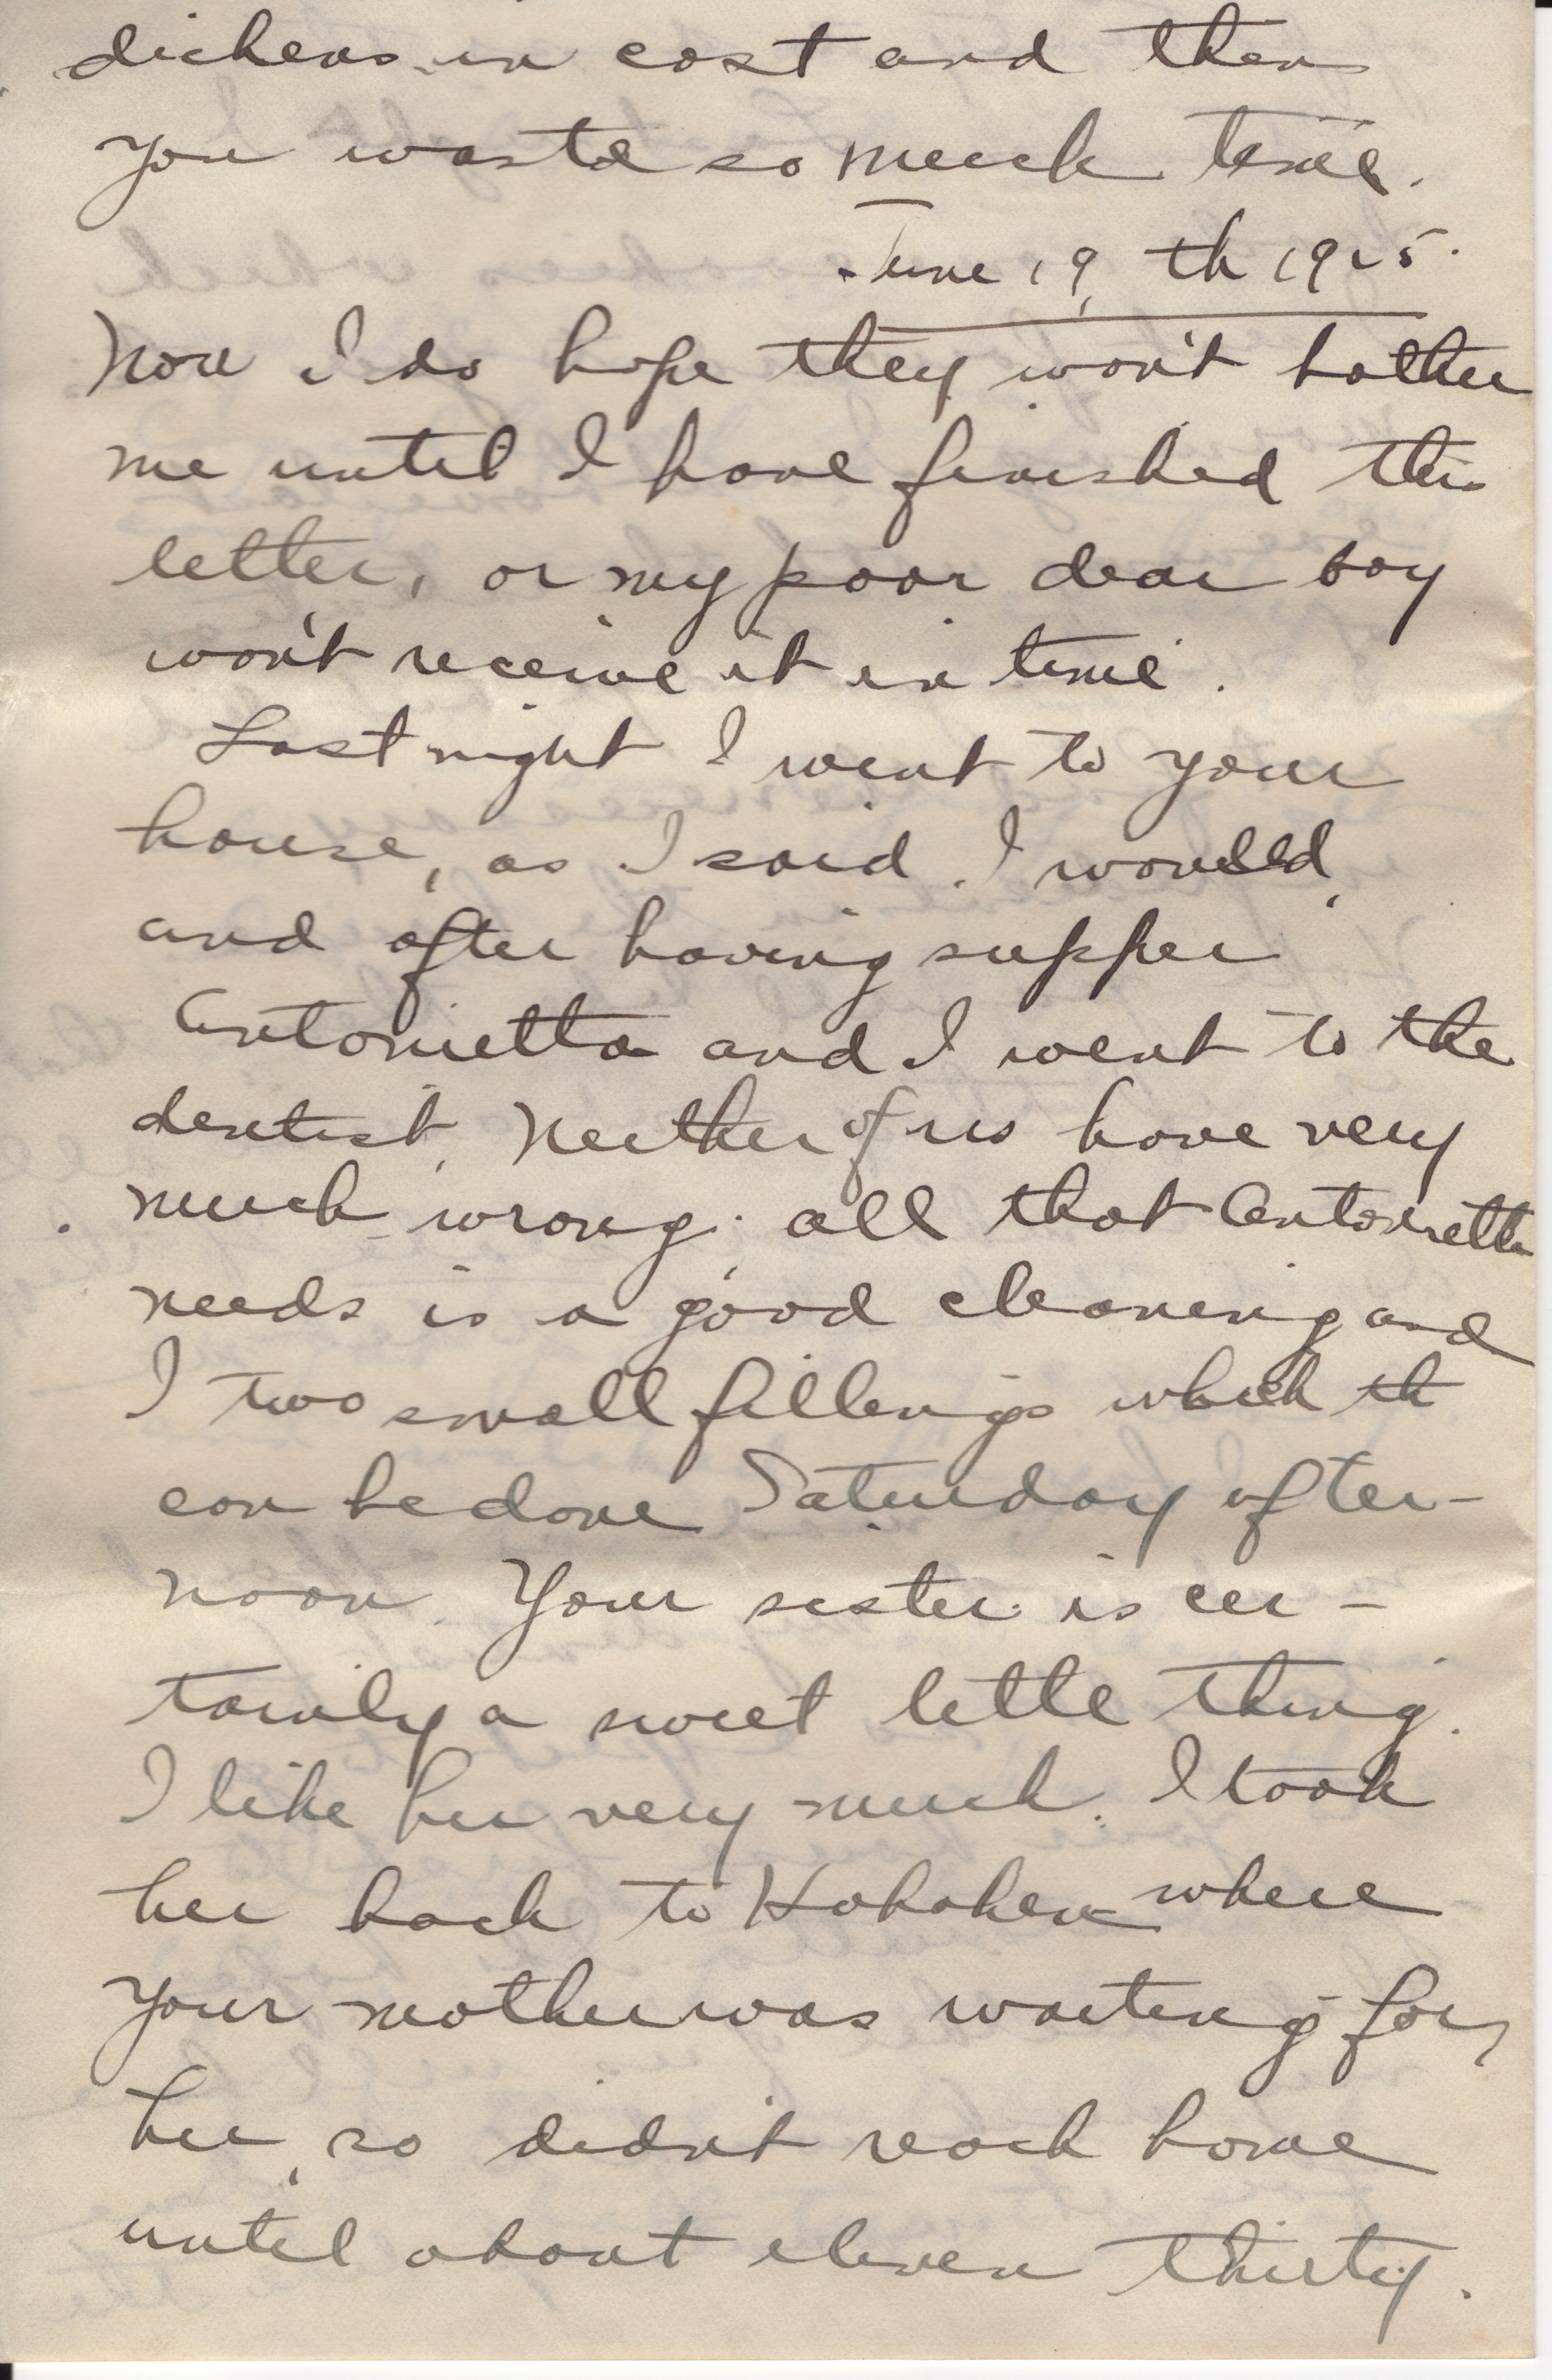 dickens in cost and then
you waste so much time.
June 19, th 1925.
Now I do hope they won't bother
me until I have finished this
letter, or my poor dear boy
won't receive it in time.
Last night I went to your
house, as I said I would,
and after having supper
Antonietta and I went to the
dentist. Neither of us have very
much wrong; all that Antonietta
needs is a good cleaning and
I two small fillings which th
can be done Saturday after-
noon. Your sister is cer-
tainly a sweet little thing.
I like her very much. I took
her back to Hoboken where
your mother was waiting for
her, so didn't reach home
until about eleven thirty.